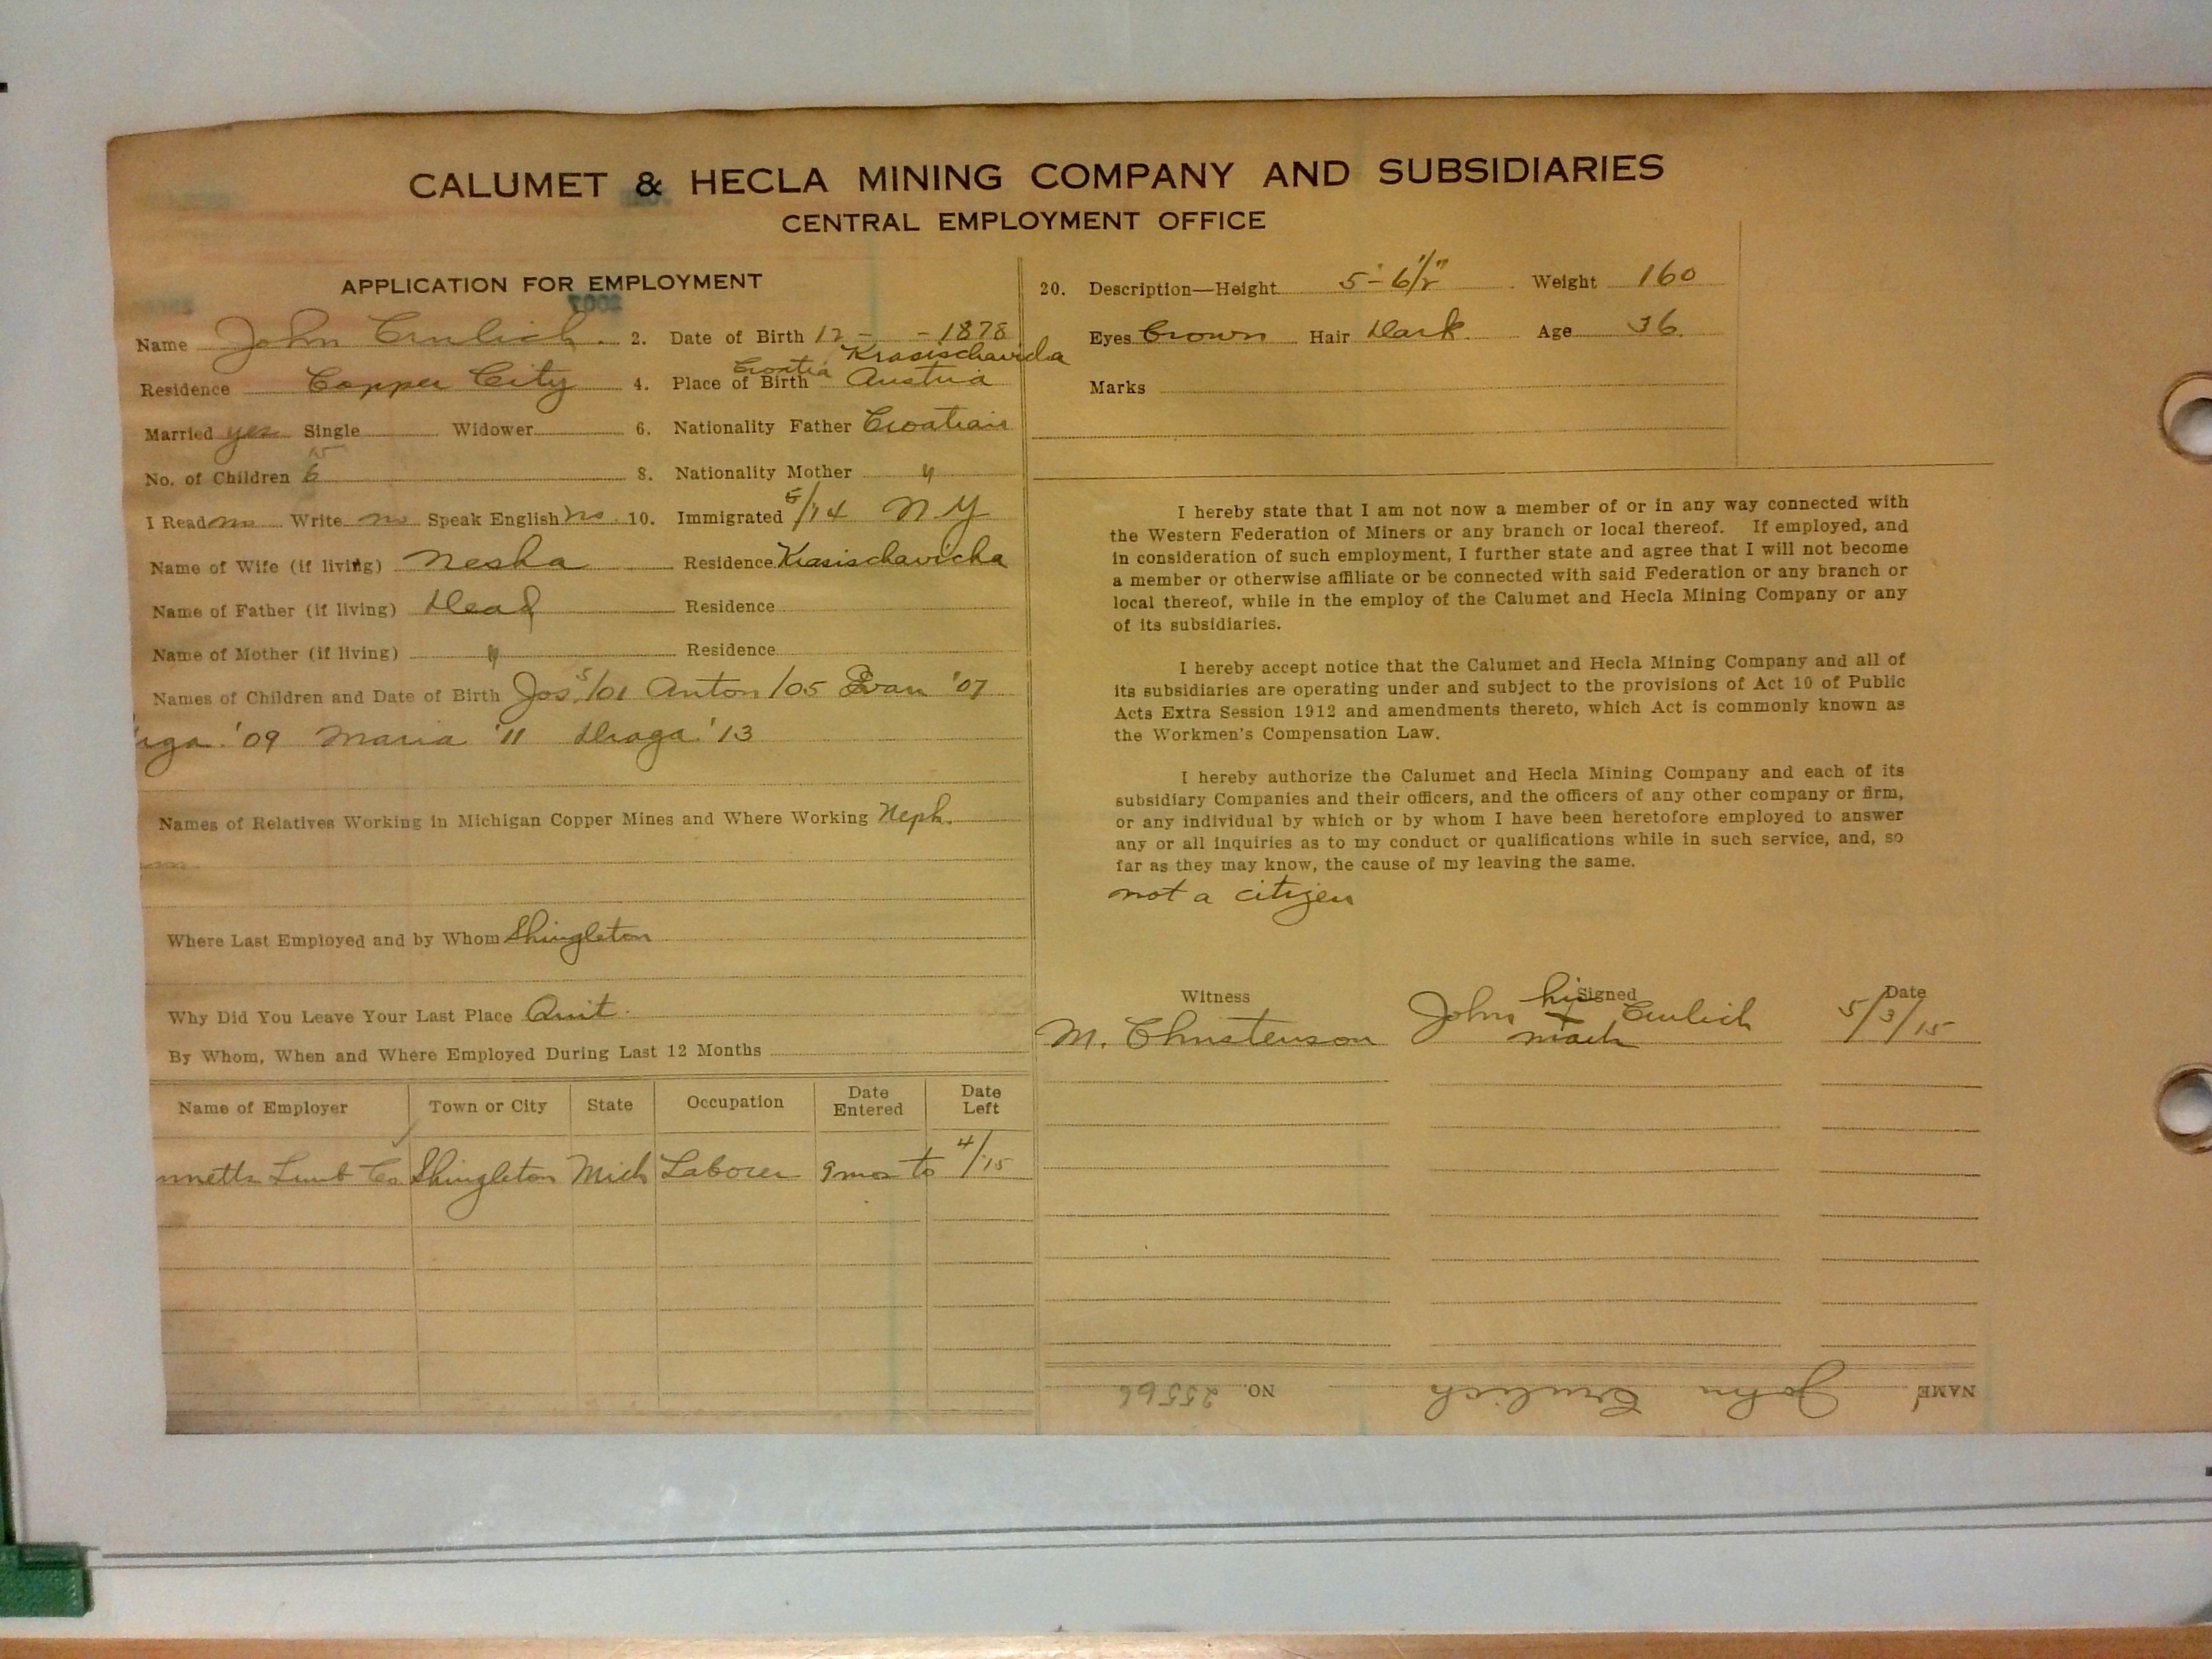 CALUMET & HECLA MINING COMPANY AND SUBSIDIARIES
CENTRAL EMPLOYMENT OFFICE
APPLICATION FOR EMPLOYMENT
Name John Crnlich. 2. Date of Birth 12 - - 1878
Krasischavicha
Residence Copper City 4. Place of Birth Croatia Austria
Married yes Single Widower 6. Nationality Father Croatian
No. of Children 6 8. Nationality Mother "
I Read no Write no Speak English no 10. Immigrated 5/14 N Y
Name of Wife (if living) Nesha Residence Krasischavicha
Name of Father (if living) Dead Residence
Name of Mother (if living) " Residence
Names of Children and Date of Birth Jos. 5/01 Anton /05 Evan '07
'09 Maria '11 Draga '13
Names of Relatives Working in Michigan Copper Mines and Where Working Neph.
Where Last Employed and by Whom Shingleton
Why Did You Leave Your Last Place Quit.
By Whom, When and Where Employed During Last 12 Months
Name of Employer Town or City State Occupation Date Entered Date Left
nnetts Lumb Co Shingleton Mich Laborer 9 mos to 4/15
20. Description—Height 5'-6½" Weight 160
Eyes Brown Hair Dark. Age 36.
Marks
I hereby state that I am not now a member of or in any way connected with
the Western Federation of Miners or any branch or local thereof. If employed, and
in consideration of such employment, I further state and agree that I will not become
a member or otherwise affiliate or be connected with said Federation or any branch or
local thereof, while in the employ of the Calumet and Hecla Mining Company or any
of its subsidiaries.
I hereby accept notice that the Calumet and Hecla Mining Company and all of
its subsidiaries are operating under and subject to the provisions of Act 10 of Public
Acts Extra Session 1912 and amendments thereto, which Act is commonly known as
the Workmen's Compensation Law.
I hereby authorize the Calumet and Hecla Mining Company and each of its
subsidiary Companies and their officers, and the officers of any other company or firm,
or any individual by which or by whom I have been heretofore employed to answer
any or all inquiries as to my conduct or qualifications while in such service, and, so
far as they may know, the cause of my leaving the same.
not a citizen
Witness Signed Date
M. Christenson John his x mark Crnlich 5/3/15
NAME John Crnlich NO. 25566